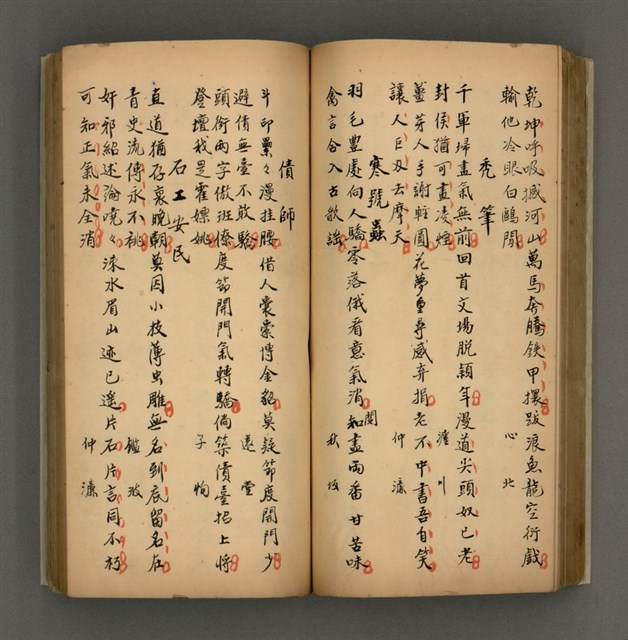 乾坤呼吸撼河山萬馬奔騰鐵甲擐跋浪魚龍空衍戲
輸他冷眼白鷗閒　心北
禿筆
千軍埽盡氣無前回首文場脫穎年漫道尖頭奴已老
封侯猶可畫凌煙　澹川
薑芽人手謝輕圓花夢重尋感弃捐老不中書吾自笑
讓人巨刃去摩天　仲濂
寒號蟲
羽毛豐處向人驕零落俄看意氣消知盡兩番甘苦味
禽言合入古歌謠　閏秋
債師
斗印纍々漫挂腰借人囊橐博金貂莫疑節度開門少
避債無臺不敢驕　蓬堂
頭銜兩字傲班僚度節開門氣轉驕倘築債臺招上將
登壇我是霍嫖姚　子恂
石工安民
直道猶存衰晚朝莫因小技薄虫雕無名到底留名在
青史流傳永不祧　鑑波
奸邪紹述論嘵々涑水眉山迹已遙片石片言同不朽
可知正氣未全消　仲濂